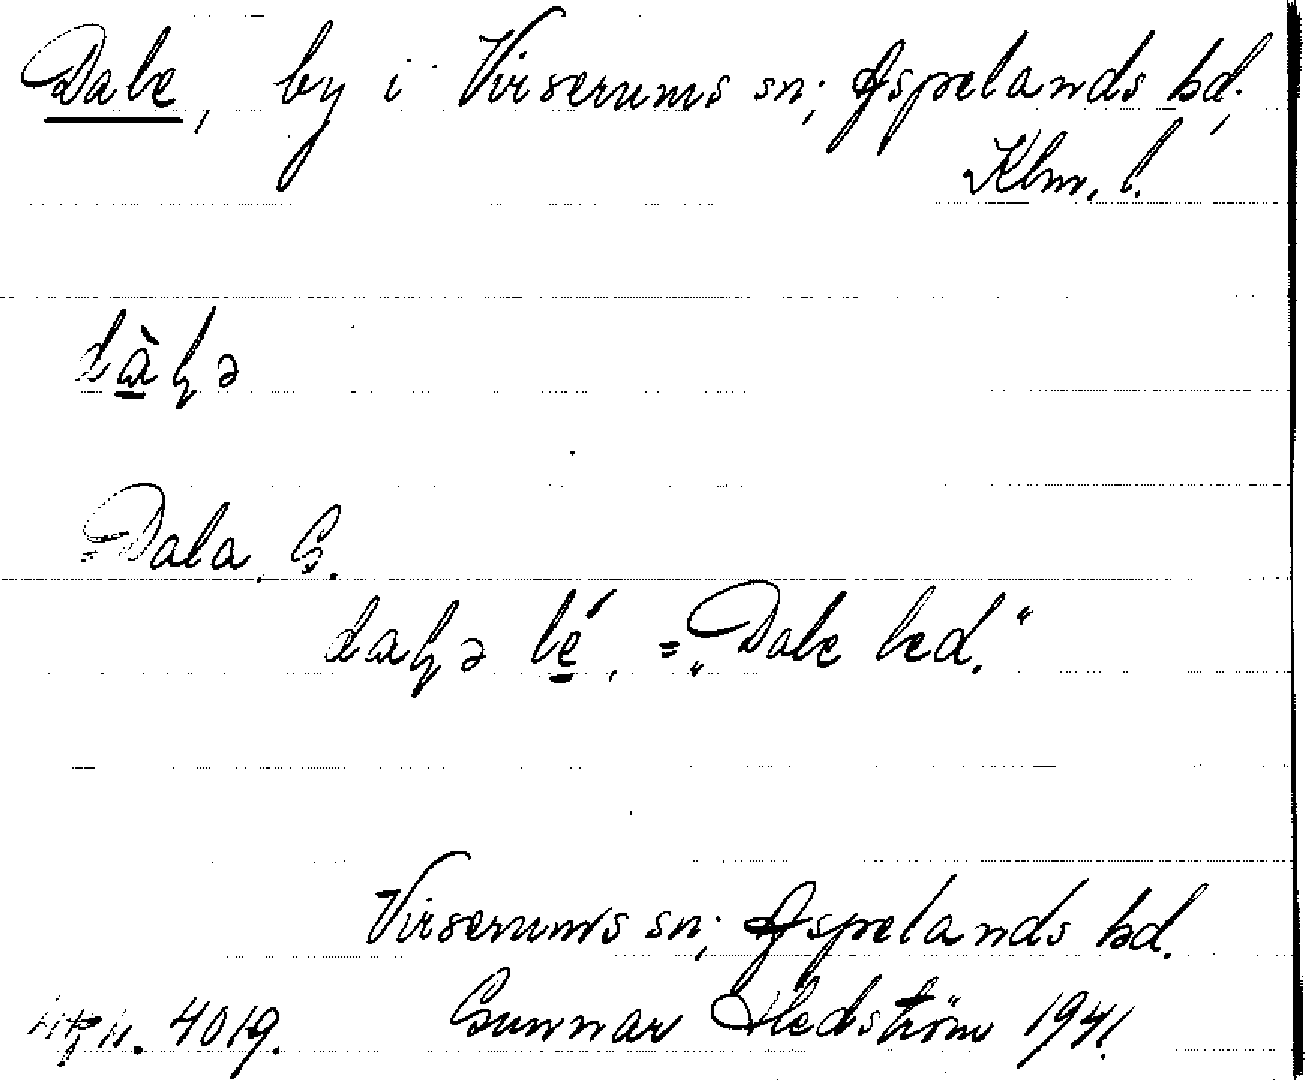 Dale, by i Virserums sn; Aspelands hd.,
Klm. l.
dàḷə
Dala. G.
daḷə lé, = „Dale led."
Virserums sn; Aspelands hd.
4019. Gunnar Hedström 1941.